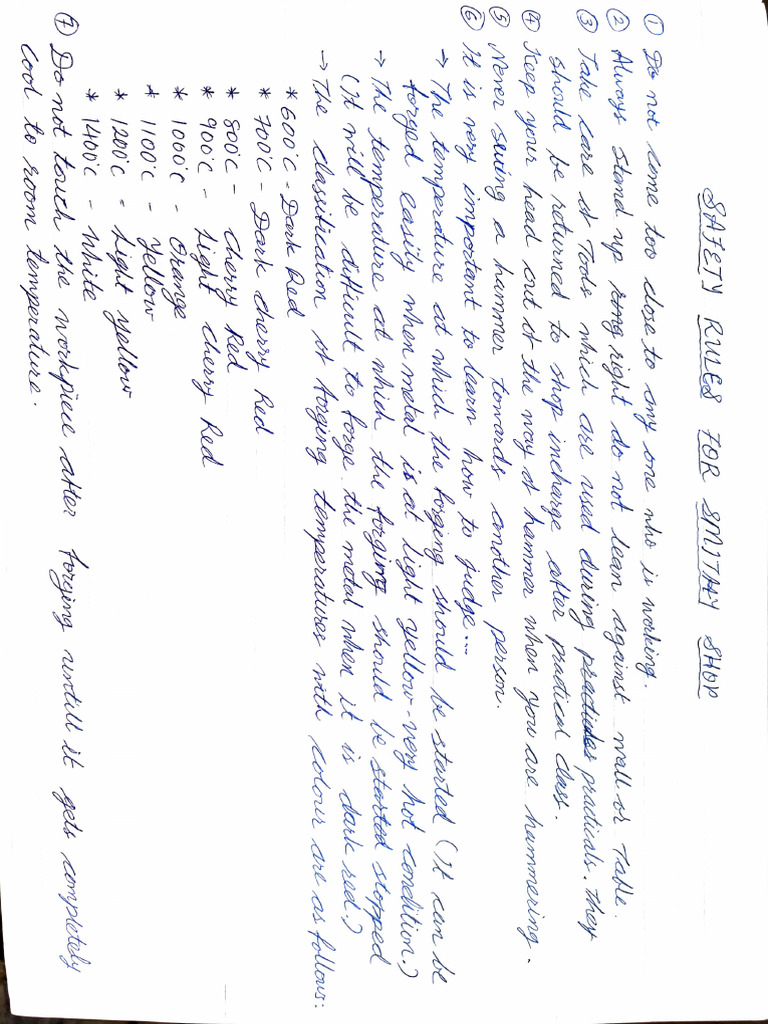 SAFETY RULES FOR SMITHY SHOP
① Do not come too close to any one who is working.
② Always stand up right do not lean against wall or Table.
③ Take care of Tools which are used during practicals. They
should be returned to shop incharge after practical class.
④ Keep your head out of the way of hammer when you are hammering.
⑤ Never swing a hammer towards another person.
⑥ It is very important to learn how to judge...
→ The temperature at which the forging should be started (It can be
forged easily when metal is at light yellow-very hot condition.)
→ The temperature at which the forging should be started stopped
(It will be difficult to forge the metal when it is dark red.)
→ The classification of forging temperatures with colour are as follows:
* 600°C - Dark Red
* 700°C - Dark cherry Red
* 800°C - Cherry Red
* 900°C - Light cherry Red
* 1000°C - Orange
* 1100°C - Yellow
* 1200°C - Light yellow
* 1400°C - White
⑦ Do not touch the workpiece after forging untill it gets completely
cool to room temperature.